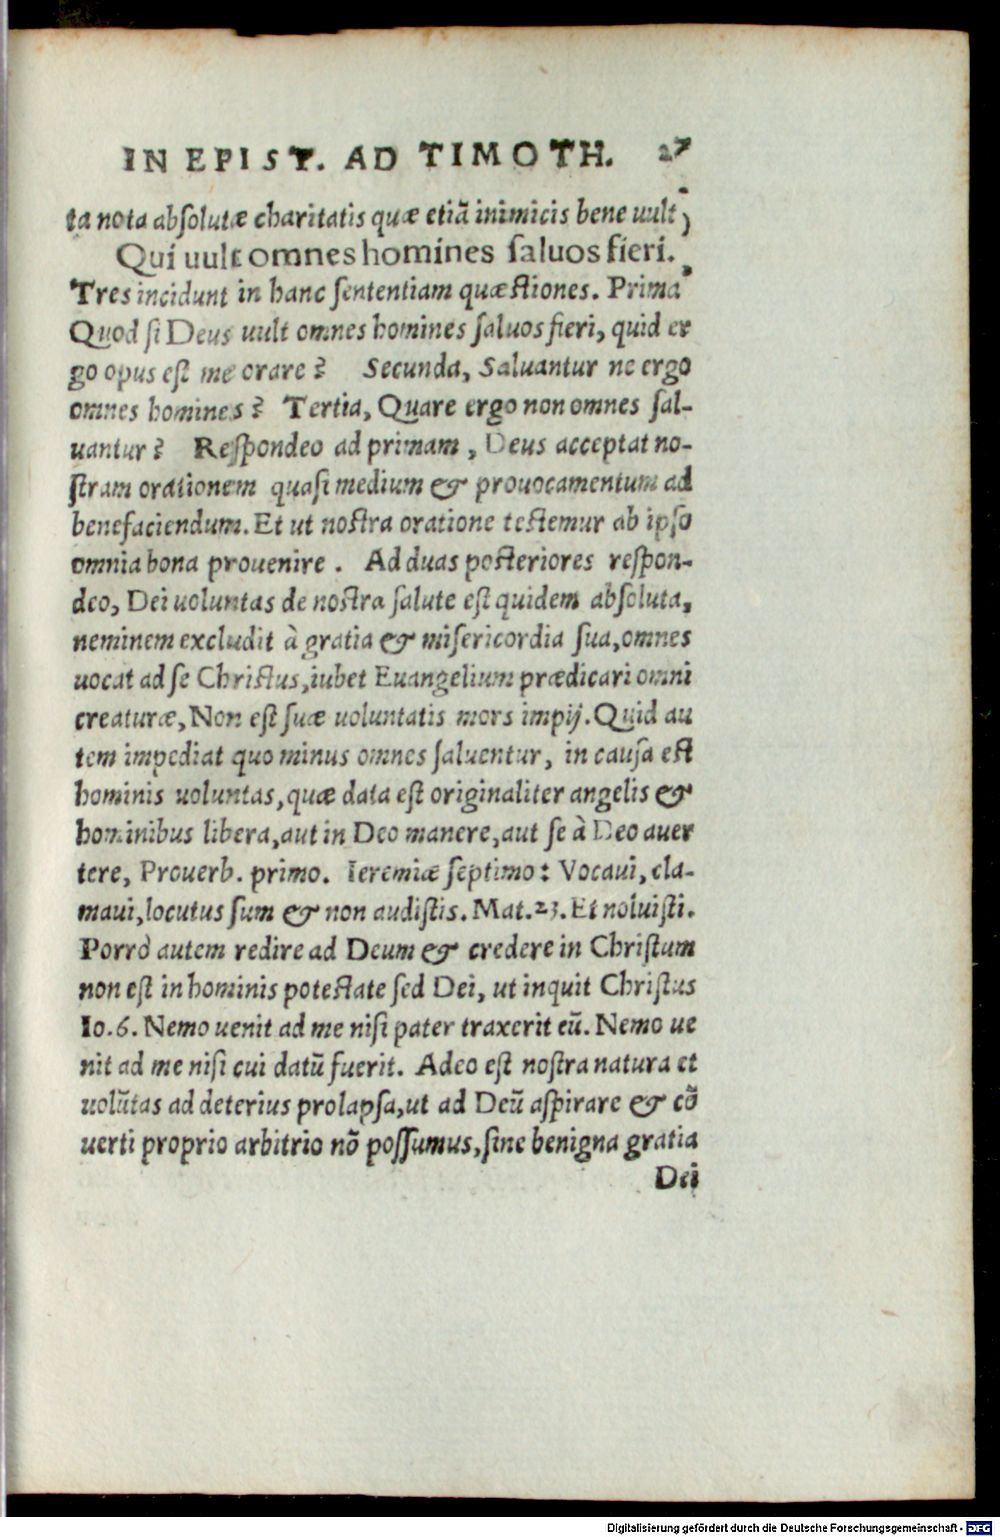 IN EPIST. AD TIMOTH. 27
ta nota absolutæ charitatis quæ etiā inimicis bene uult
Qui uult omnes homines saluos fieri.
Tres incidunt in hanc sententiam quæstiones. Prima
Quod si Deus uult omnes homines saluos fieri, quid er
go opus est me orare? Secunda, Saluantur ne ergo
omnes homines? Tertia, Quare ergo non omnes sal-
uantur? Respondeo ad primam, Deus acceptat no-
stram orationem quasi medium & prouocamentum ad
benefaciendum. Et ut nostra oratione testemur ab ipso
omnia bona prouenire. Ad duas posteriores respon-
deo, Dei uoluntas de nostra salute est quidem absoluta,
neminem excludit à gratia & misericordia sua, omnes
uocat ad se Christus, iubet Euangelium prædicari omni
creaturæ, Non est suæ uoluntatis mors impij. Quid au
tem impediat quo minus omnes saluentur, in causa est
hominis uoluntas, quæ data est originaliter angelis &
hominibus libera, aut in Deo manere, aut se à Deo auer
tere, Prouerb. primo. Ieremiæ septimo: Vocaui, cla-
maui, locutus sum & non audistis. Mat. 23. Et noluisti.
Porrò autem redire ad Deum & credere in Christum
non est in hominis potestate sed Dei, ut inquit Christus
Io. 6. Nemo uenit ad me nisi pater traxerit eū. Nemo ue
nit ad me nisi cui datū fuerit. Adeo est nostra natura et
uolūtas ad deterius prolapsa, ut ad Deū aspirare & cō
uerti proprio arbitrio nō possumus, sine benigna gratia
Dei
Digitalisierung gefördert durch die Deutsche Forschungsgemeinschaft - DFG